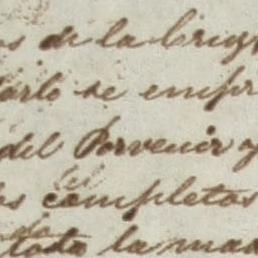 os de la brig
arlo se empr
del Porvenir y
as completas
toda la ma